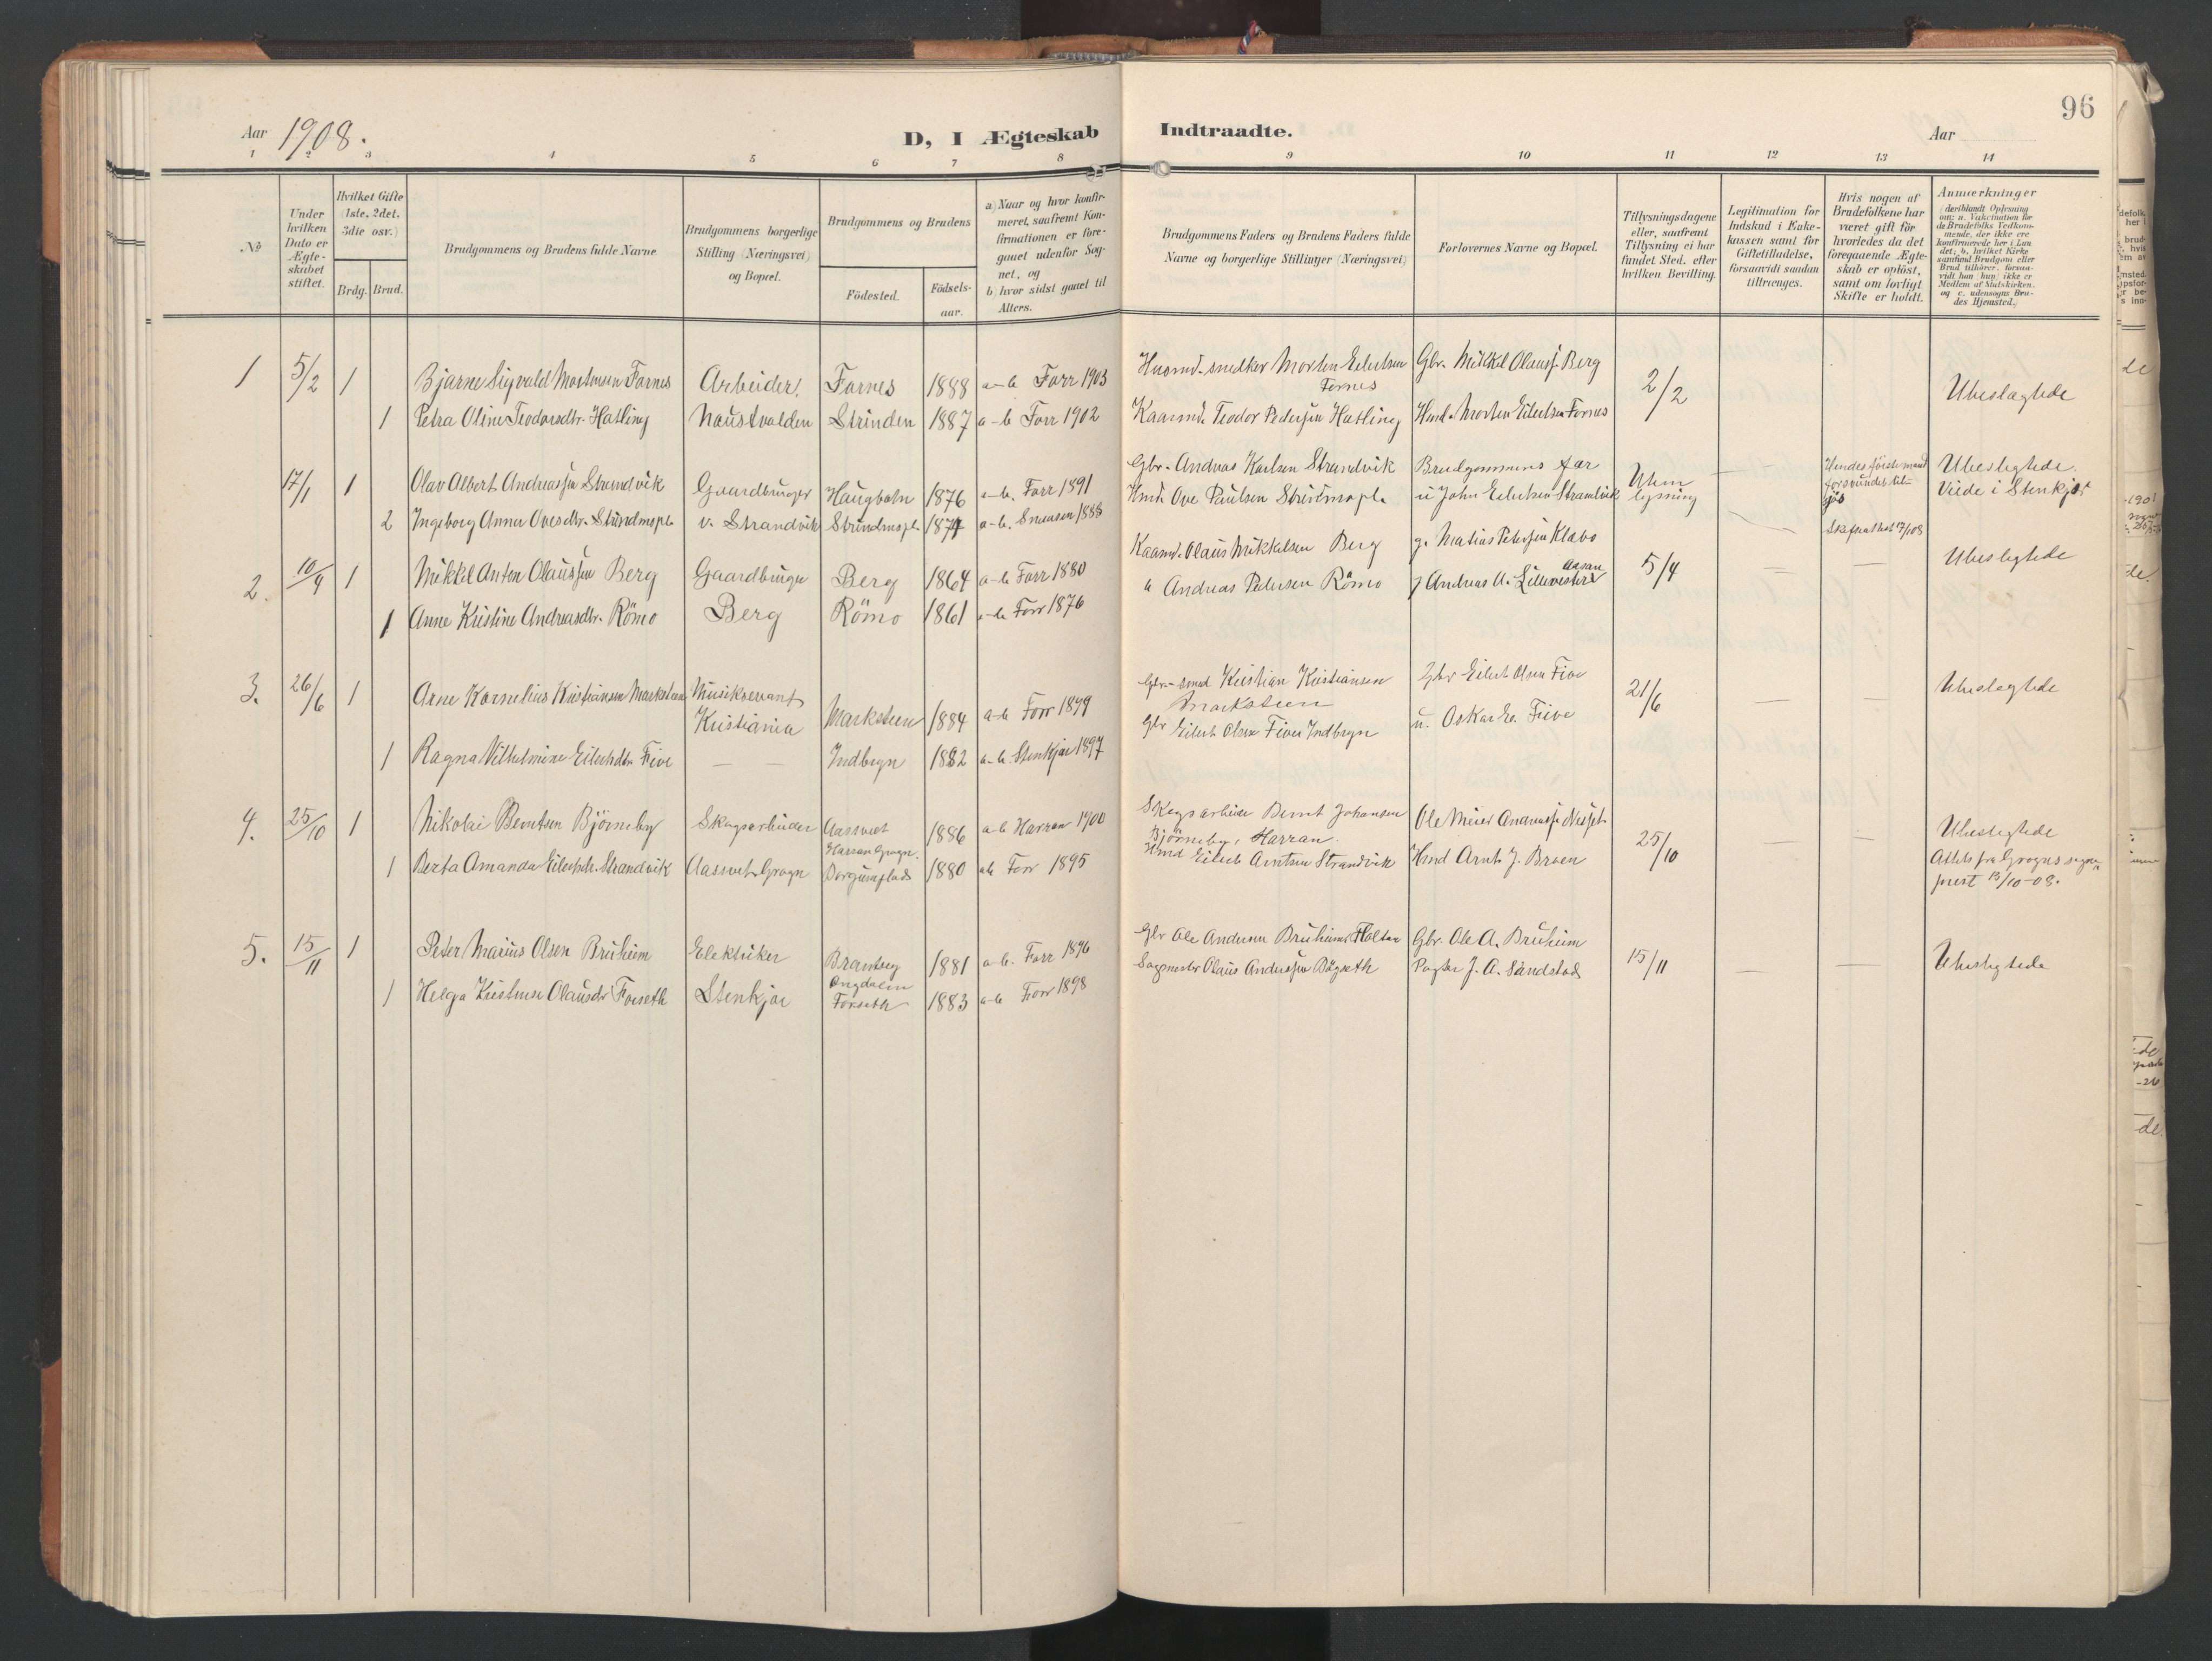 96
Aar 1908.
D, I Ægteskab Indtraadte.
Aar
1 2 3 4 5 6 7 8 9 10 11 12 13 14
No
Under hvilken Dato er Ægteskabet stiftet.
Hvilket Gifte (1ste, 2det, 3die osv.)
Brdg. Brud.
Brudgommens og Brudens fulde Navne
Brudgommens borgerlige Stilling (Næringsvei) og Bopæl.
Brudgommens og Brudens
Födested.
Födselsaar.
a) Naar og hvor konfirmeret, saafremt Konfirmationen er foregaaet udenfor Sognet, og
b) hvor sidst gaaet til Alters.
Brudgommens Faders og Brudens Faders fulde Navne og borgerlige Stillinger (Næringsvei)
Forlovernes Navne og Bopæl.
Tillysningsdagene eller, saafremt Tillysning ei har fundet Sted, efter hvilken Bevilling.
Legitimation for Indskud i Enkekassen samt for Giftetilladelse, forsaavidt saadan tiltrænges.
Hvis nogen af Brudefolkene har været gift för hvorledes da det foregaaende Ægteskab er oplöst, samt om lovligt Skifte er holdt.
Anmærkninger
(deriblandt Oplysning om: a. Vakcination for de Brudefolks Vedkommende, der ikke ere konfirmerede her i Landet; b, hvilket Kirkesamfund Brudgom eller Brud tilhörer, forsaavidt han (hun) ikke er Medlem af Statskirken, og c. udensogns Brudes Hjemsted.)
1 5/2 1 Bjarne Sigvald Mortensen Fornes Arbeider, Fornes 1888 a-b Forr 1903 Husmd. snedker Morten Eilertsen Fornes Gbr. Mikkel Olauss. Berg 2/2 Ubeslægtede
1 Petra Oline Teodorsdtr. Hatling Naustvolden Strinden 1887 a-b Forr 1902 Kaarmd. Teodor Pedersen Hatling Hmd. Morten Eilertsen Fornes
17/1 1 Olav Albert Andreassen Strandvik Gaardbruger Haugholn 1876 a-b. Forr 1891 Gbr. Andreas Karlsen Strandvik Brudgommens far Uten lysning Hendes förste mand forsvundet til sjös Ubeslegtede. Viede i Stenkjær
2 Ingeborg Anna Ovesdtr. Strindmopl. v. Strandvik Strindmopl. 1874 a-b. Snaasen 1888 Hmd. Ove Paulsen Strindmopl. u John Eilertsen Strandvik
Skifteattest 17/1 08
2. 10/4 1 Mikkel Anton Olaussen Berg Gaardbruger Berg 1864 a-b Forr 1880 Kaarmd. Olaus Mikkelsen Berg g. Matias Petersen Klævo 5/4 Ubeslegtede
1 Anne Kristine Andreasdtr. Römo Berg Römo 1861 a-b Forr 1876 " Andreas Pedersen Römo
3. 26/6 1 Arne Kornelius Kristiansen Marksteen Musikserant Kristiania Marksteen 1884 a-b Forr 1899 Gbr.-smed Kristian Kristiansen Marksteen Gbr Eilert Olsen Five 21/6 Ubeslægtede
1 Ragna Vilhelmine Eilertsdtr. Five Indbryn 1882 a-b. Stenkjær 1897 Gbr Eilert Olsen Five, Indbryn u. Oskar E. Five
4. 25/10 1 Nikolai Berntsen Björneby Skogsarbeider Aassvet Harran Grogn. 1886 a-b Harran 1900 Skogsarbeider Bernt Johansen Björneby, Harran. Ole Meier Andreass. Nesset 25/10 Ubeslegtede
1 Berta Amanda Eilertsdtr. Strandvik Aassvet Grogn Borgumplads 1880 ab Forr 1895 Hmd Eilert Arntsen Strandvik Hmd Arnt J. Braen Attest fra Grogns sogneprest 13/10-08.
5. 15/11 1 Peter Marius Olsen Bruheim Elektriker 1881 a-b. Forr 1896 Gbr Ole Andersen Bruheim, Holtan Gbr. Ole A. Bruheim 15/11 Ubeslegtede
1 Helga Kristine Olausdtr Forseth Stenkjær Ongdalen Forseth 1883 a-b Forr 1898 Sagmester Olaus Anderssen Bögseth J. A. Sandstad